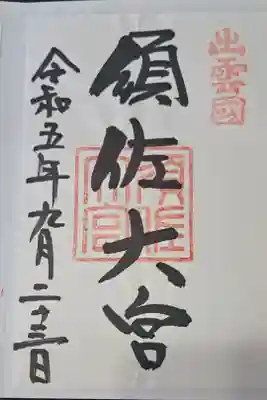 出雲國
須佐大宮
須佐大宮
令和五年九月二十三日